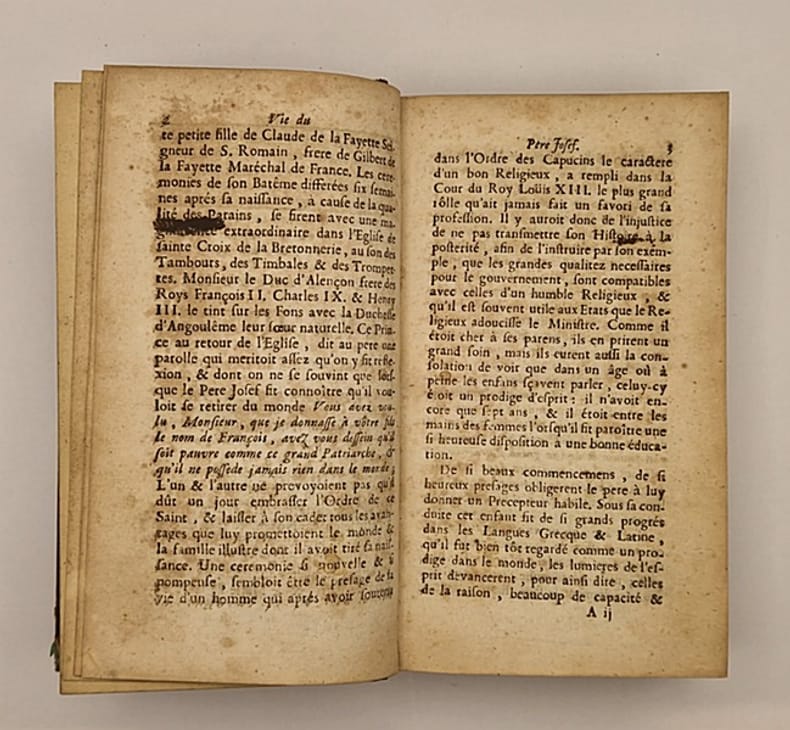 2 Vie du
te petite fille de Claude de la Fayette Sei-
gneur de S. Romain , frere de Gilbert de
la Fayette Maréchal de France. Les cere-
monies de son Batême differées six semai-
nes aprés sa naissance , à cause de la qua-
lité des Parains , se firent avec une ma-
gnificence extraordinaire dans l'Eglise de
sainte Croix de la Bretonnerie, au son des
Tambours, des Timbales & des Trompet-
tes. Monsieur le Duc d'Alençon frere des
Roys François II. Charles IX. & Henry
III. le tint sur les Fons avec la Duchesse
d'Angoulême leur sœur naturelle. Ce Prin-
ce au retour de l'Eglise , dit au pere une
parolle qui meritoit assez qu'on y fit refle-
xion , & dont on ne se souvint que lors-
que le Pere Josef fit connoître qu'il vou-
loit se retirer du monde Vous avez vou-
lu , Monsieur, que je donnasse à vôtre fils
le nom de François, avez vous dessein qu'il
soit pauvre comme ce grand Patriarche, &
qu'il ne possede jamais rien dans le monde ;
L'un & l'autre ne prevoyoient pas qu'il
dût un jour embrasser l'Ordre de ce
Saint , & laisser à son cadet tous les avan-
tages que luy promettoient le monde &
la famille illustre dont il avoit tiré sa nais-
sance. Une ceremonie si nouvelle & si
pompeuse , sembloit être le presage de la
vie d'un homme qui aprés avoir soutenu
Père Josef. 3
dans l'Ordre des Capucins le caractere
d'un bon Religieux , a rempli dans la
Cour du Roy Loüis XIII. le plus grand
rôlle qu'ait jamais fait un favori de sa
profession. Il y auroit donc de l'injustice
de ne pas transmettre son Histoire à la
posterité , afin de l'instruire par son exem-
ple , que les grandes qualitez necessaires
pour le gouvernement , sont compatibles
avec celles d'un humble Religieux , &
qu'il est souvent utile aux Etats que le Re-
ligieux adoucisse le Ministre. Comme il
étoit cher à ses parens, ils en prirent un
grand soin , mais ils eurent aussi la con-
solation de voir que dans un âge où à
peine les enfans sçavent parler , celuy-cy
étoit un prodige d'esprit : il n'avoit en-
core que sept ans , & il étoit entre les
mains des femmes lorsqu'il fit paroître une
si heureuse disposition à une bonne éduca-
tion.
De si beaux commencemens , de si
heureux presages obligerent le pere à luy
donner un Precepteur habile. Sous sa con-
duite cet enfant fit de si grands progrés
dans les Langues Grecque & Latine ,
qu'il fut bien tôt regardé comme un pro-
dige dans le monde, les lumieres de l'es-
prit devancerent , pour ainsi dire , celles
de la raison , beaucoup de capacité &
A ij